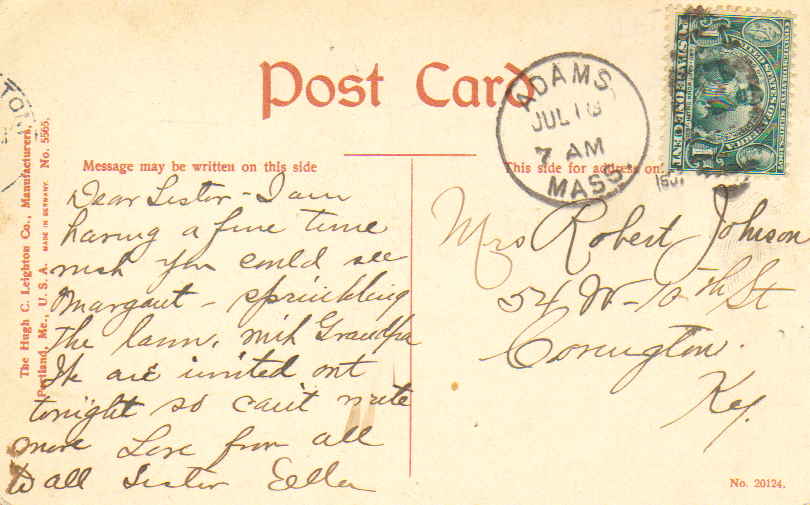 Post Card
ADAMS
JUL 18
7 AM
MASS.
Message may be written on this side
This side for address on
The Hugh C. Leighton Co., Manufacturers,
Portland, Me., U. S. A. MADE IN GERMANY. No. 5565.
Dear Sister - I am
having a fine time
wish you could see
Margaret - sprinkling
the lawn, with Grandpa
We are invited out
tonight so can't write
more Love from all
to all Sister Ella
Mrs Robert Johnson
54 W - th St
Covington.
Ky.
No. 20124.